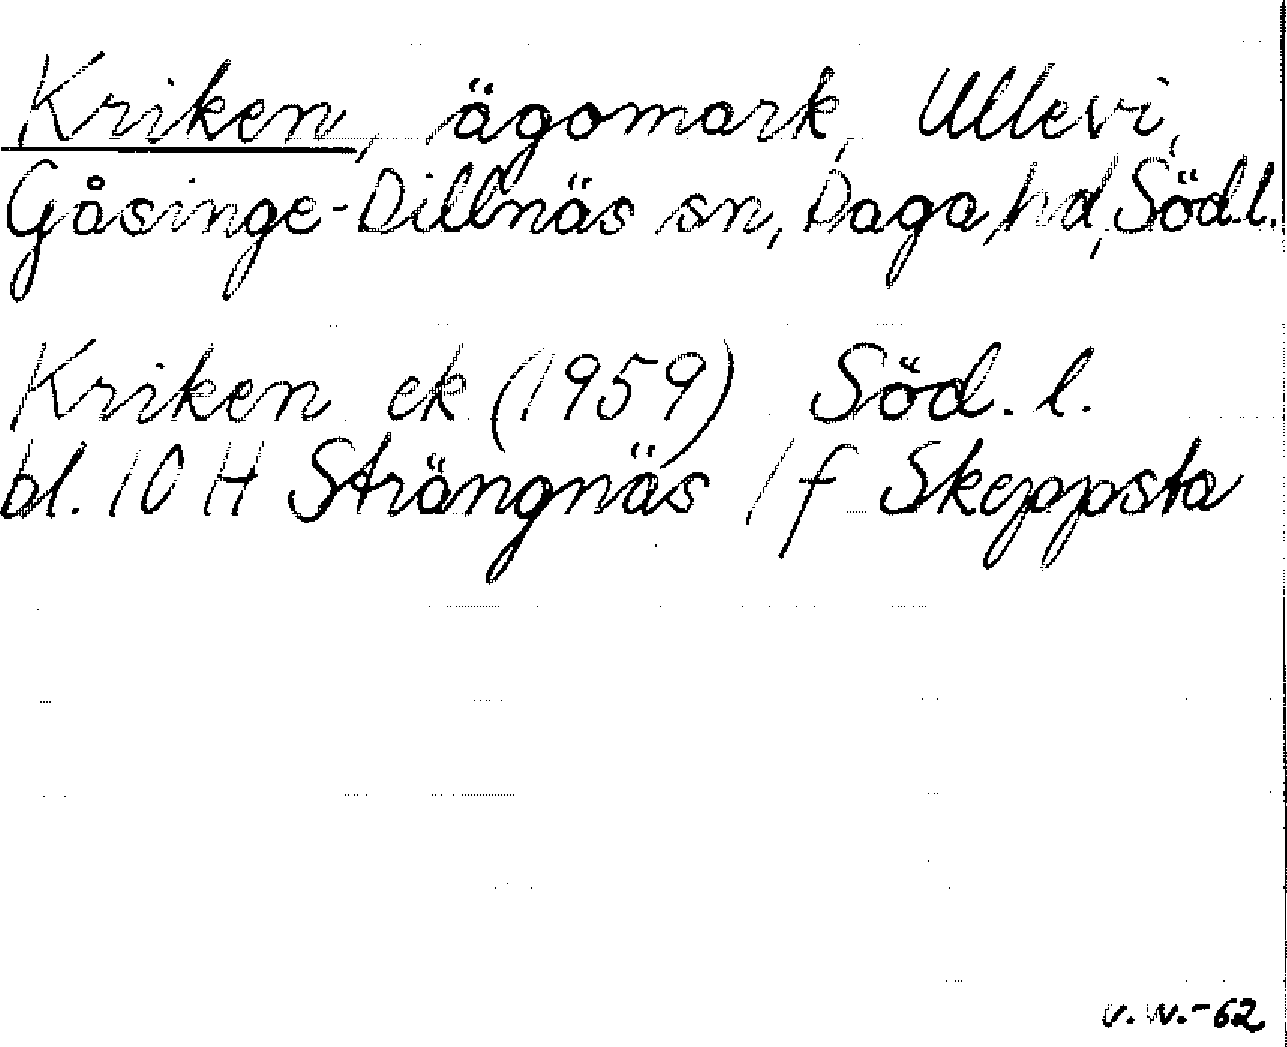 Kriken, ägomark, Ullevi,
Gåsinge-Dillnäs sn, Daga hd, Södl.
Kriken ek (1959) Söd. l.
bl. 10 H Strängnäs 1 f Skeppsta
v.w.-62